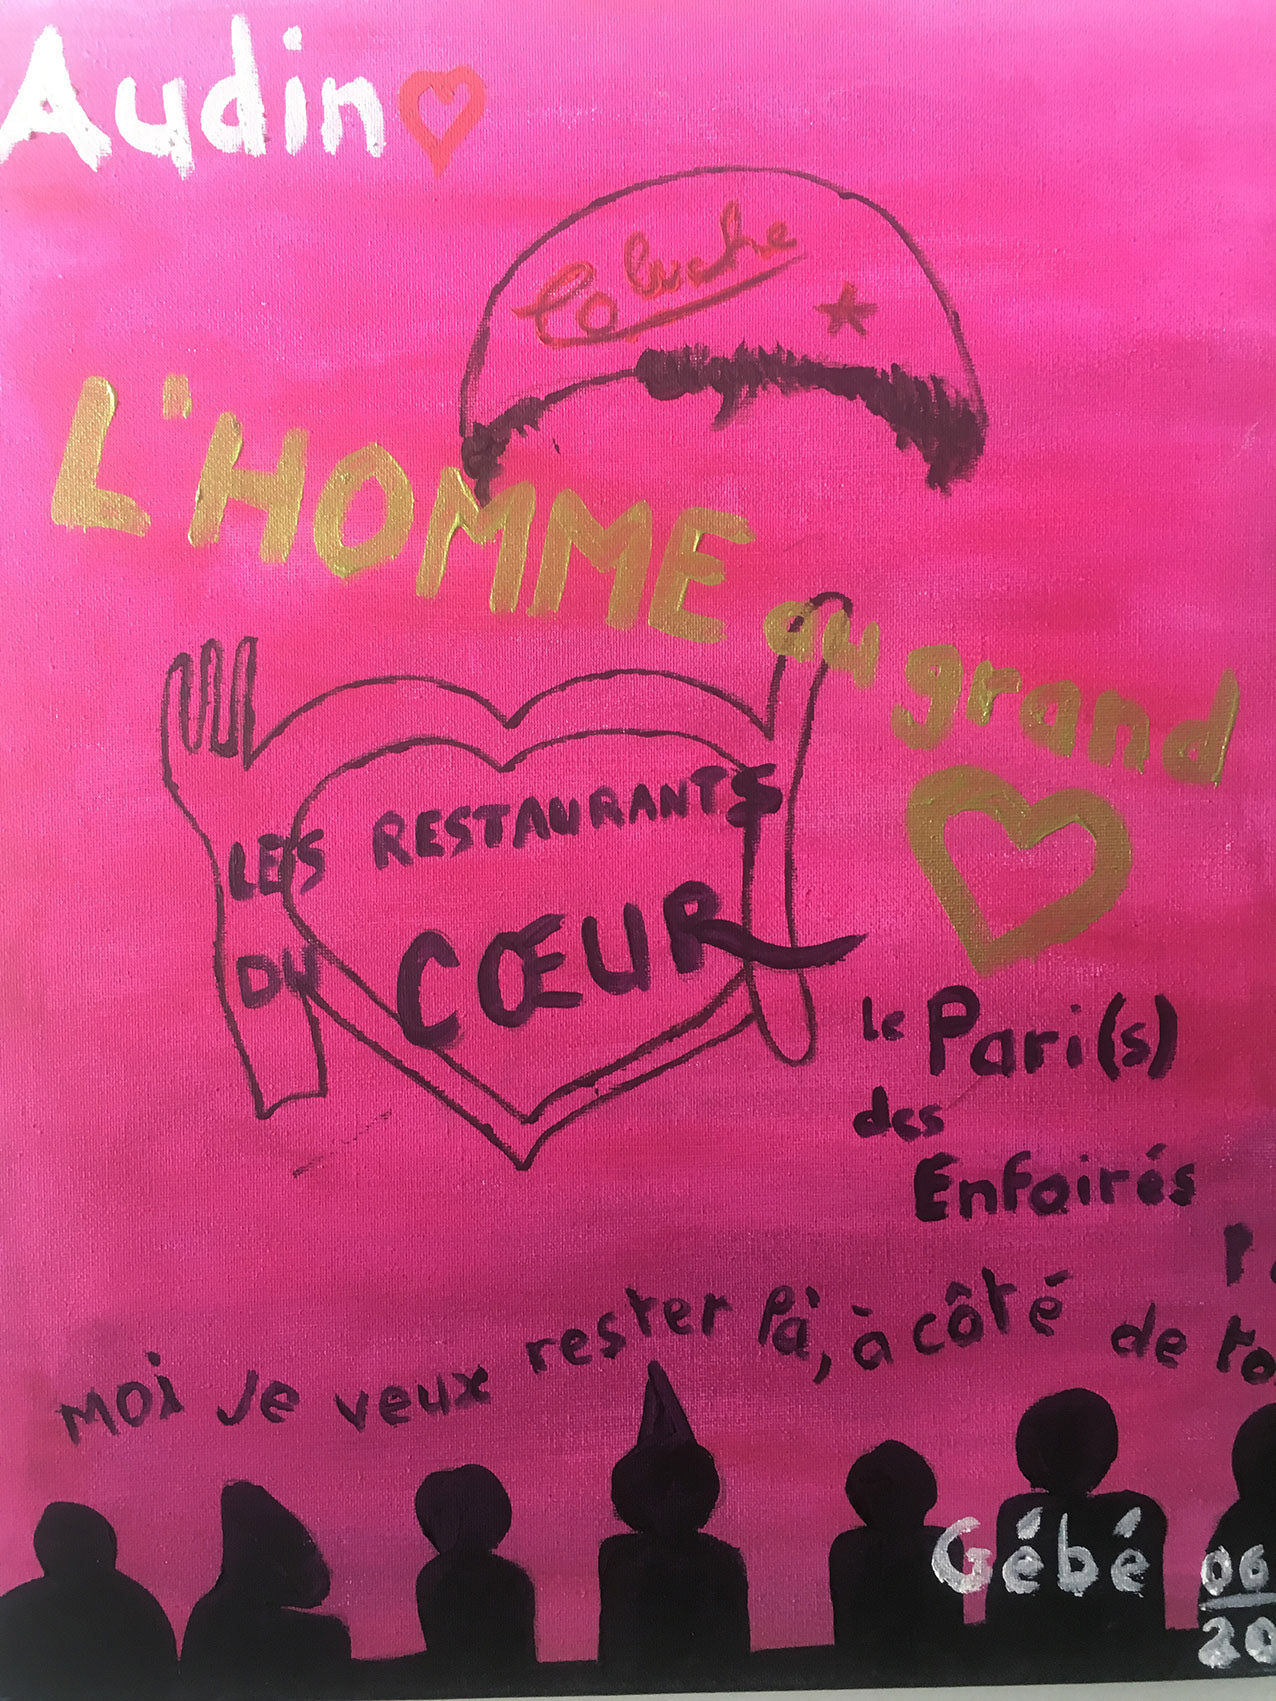 Audin
Coluche
L'HOMME au grand
LES RESTAURANTS
DU CŒUR
le Pari(s)
des
Enfoirés
Moi je veux rester là, à côté de to
Gébé
06
20